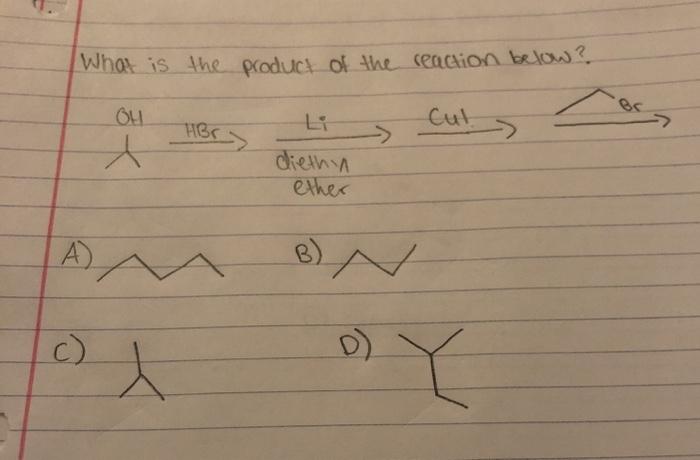 What is the product of the reaction below?
OH HBr Li CuI Br
diethyl
ether
A) B)
C) D)